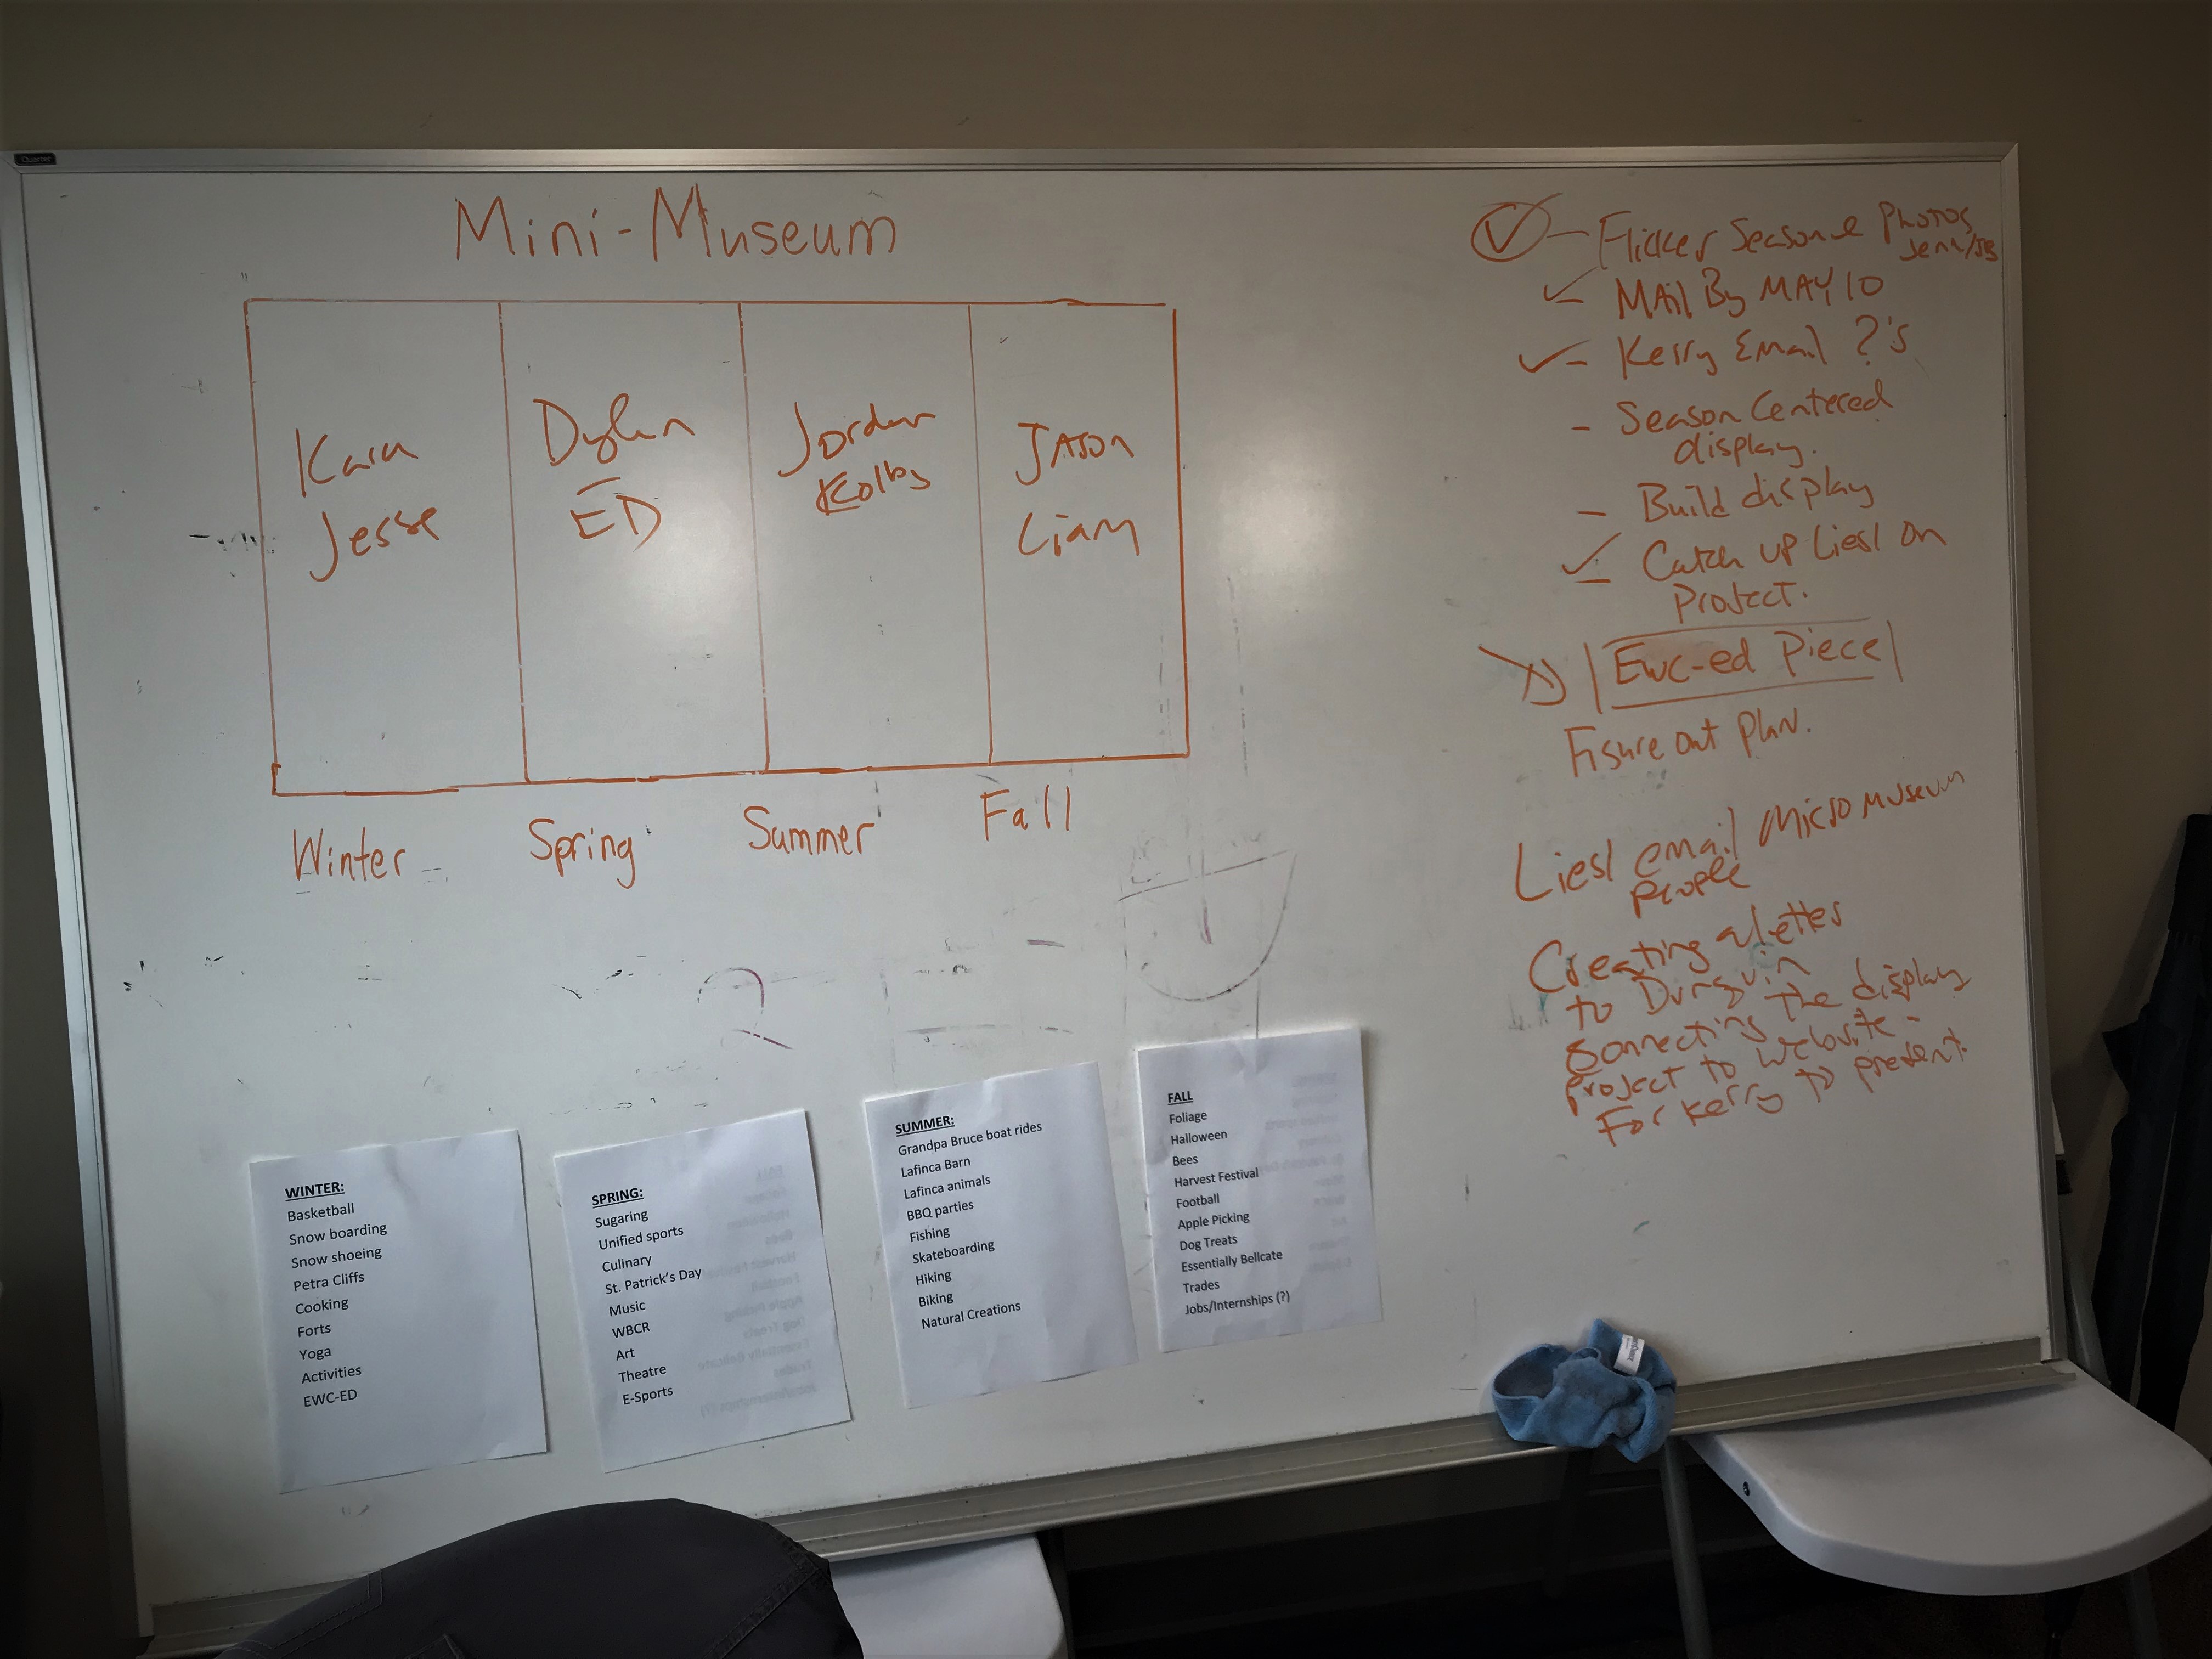 Quartet
Mini-Museum
Kara
Jesse
Dylan
ED
Jordan
Kolby
JASON
Liam
Winter
Spring
Summer
Fall
- Flicker Seasonal Photos
Jenn/JB
- MAil By MAY 10
- Kerry Email ?'s
- Season Centered
display.
- Build display
- Catch up Liesl on
Project.
Ewc-ed Piece
Figure out Plan.
Liesl email Micro Museum
People
Creating a letter
to
connecting the display
project to website -
For Kerry to present.
WINTER:
Basketball
Snow boarding
Snow shoeing
Petra Cliffs
Cooking
Forts
Yoga
Activities
EWC-ED
SPRING:
Sugaring
Unified sports
Culinary
St. Patrick's Day
Music
WBCR
Art
Theatre
E-Sports
SUMMER:
Grandpa Bruce boat rides
Lafinca Barn
Lafinca animals
BBQ parties
Fishing
Skateboarding
Hiking
Biking
Natural Creations
FALL
Foliage
Halloween
Bees
Harvest Festival
Football
Apple Picking
Dog Treats
Essentially Bellcate
Trades
Jobs/Internships (?)